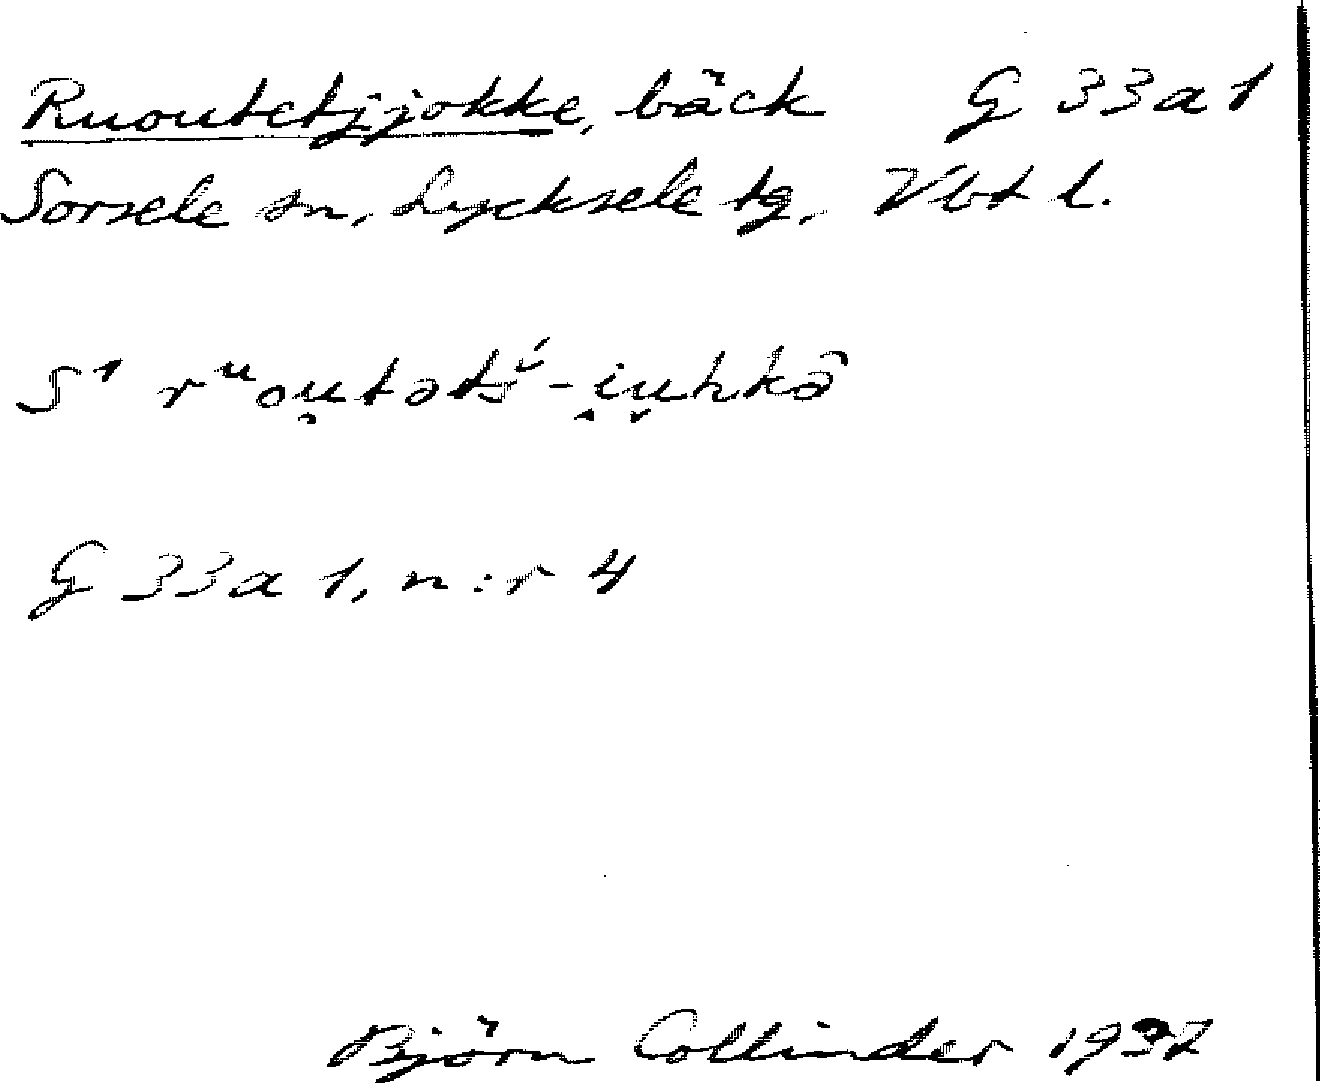 Ruoutetjjokke, bäck G 33a1
Sorsele sn, Lycksele tg, Vbt l.
S¹ rᵘou̯tətš́-i̯u̯hkâ
G 33a 1, n:r 4
Björn Collinder 1937